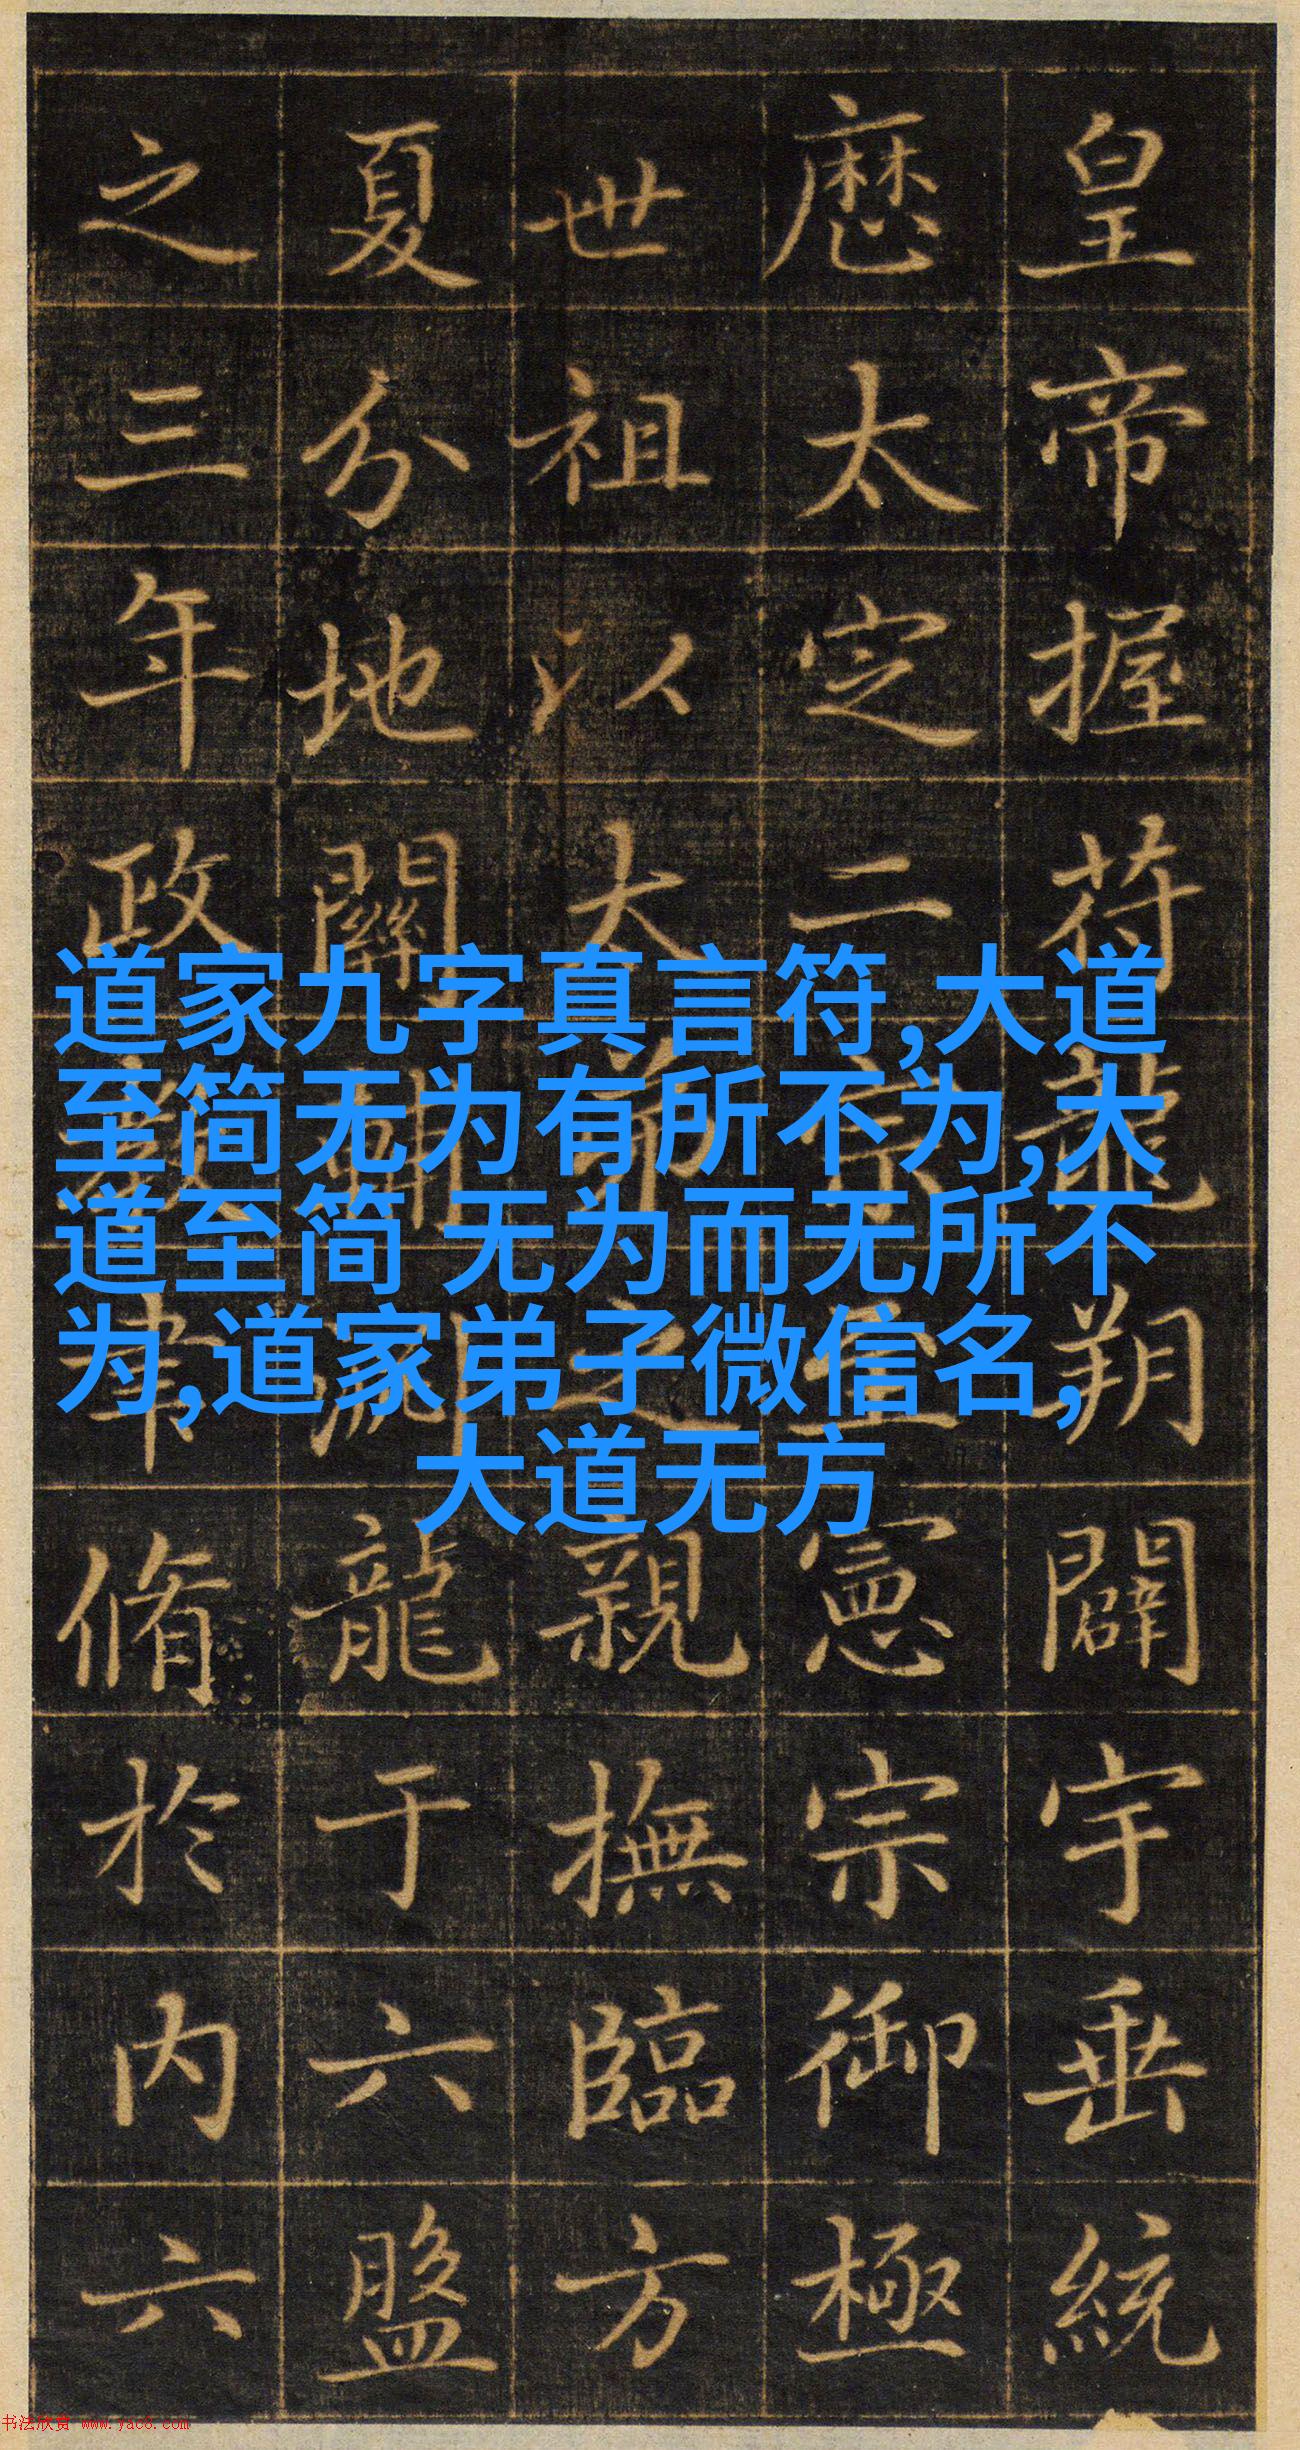 皇帝握符龍朔闢宇垂統
太定二宗至憲宗御極
世祖以大弟之親撫臨方
夏分地關輔淵龍于六盤
之三年政教脩於内六
道家九字真言符,大道
至简无为有所不为,大
道至简 无为而无所不
为,道家弟子微信名,
大道无方
书法欣赏 www.yac8.com